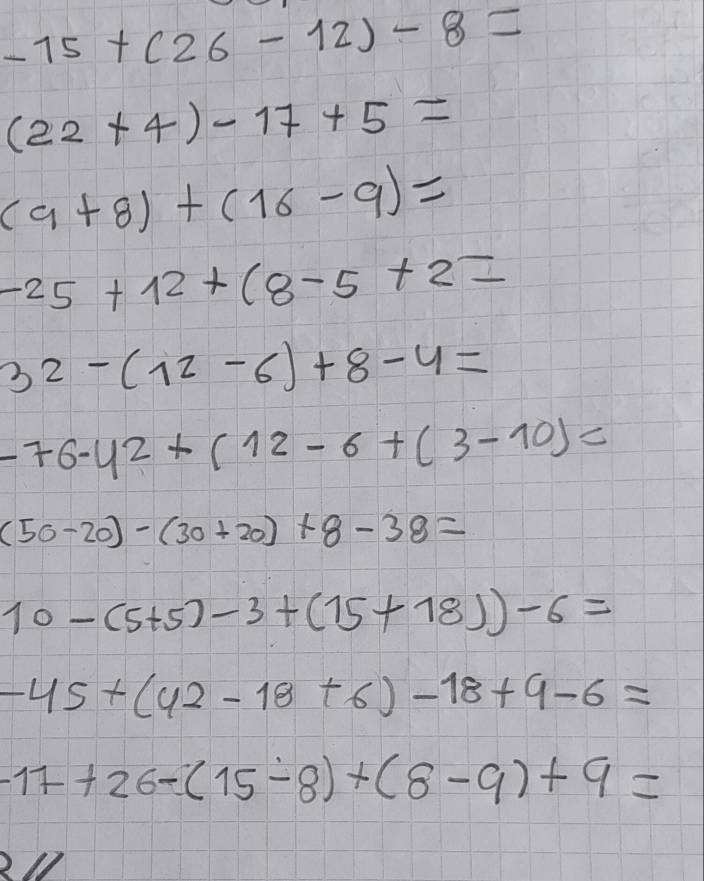 -15 + (26 - 12) - 8 =
(22 + 4) - 17 + 5 =
(9 + 8) + (16 - 9) =
-25 + 12 + (8 - 5 + 2 =
32 - (12 - 6) + 8 - 4 =
-76-42 + (12 - 6 + (3 - 10) =
(50 - 20) - (30 + 20) + 8 - 38 =
10 - (5+5) - 3 + (15 + 18)) - 6 =
-45 + (42 - 18 + 6) - 18 + 9 - 6 =
-17 + 26 - (15 - 8) + (8 - 9) + 9 =